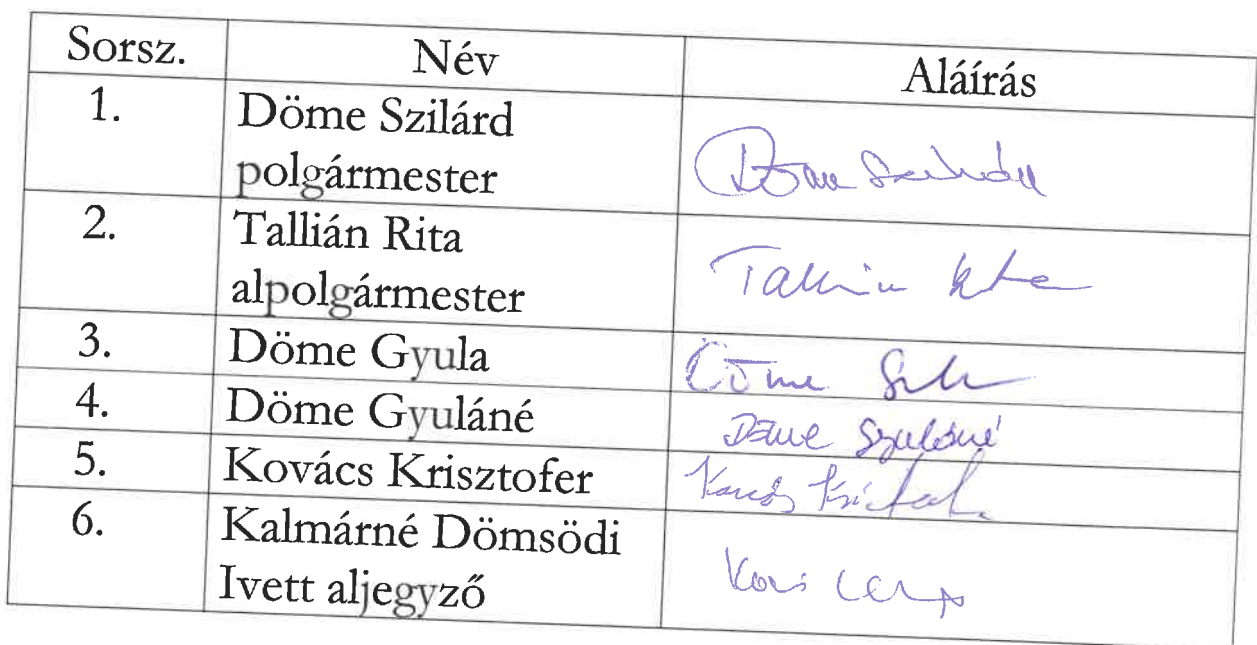 Sorsz. Név Aláírás
1. Döme Szilárd
polgármester
Döme Szilárd
2. Tallián Rita
alpolgármester
Tallián Rita
3. Döme Gyula Döme
4. Döme Gyuláné Döme Gyuláné
5. Kovács Krisztofer Kovács
6. Kalmárné Dömsödi
Ivett aljegyző